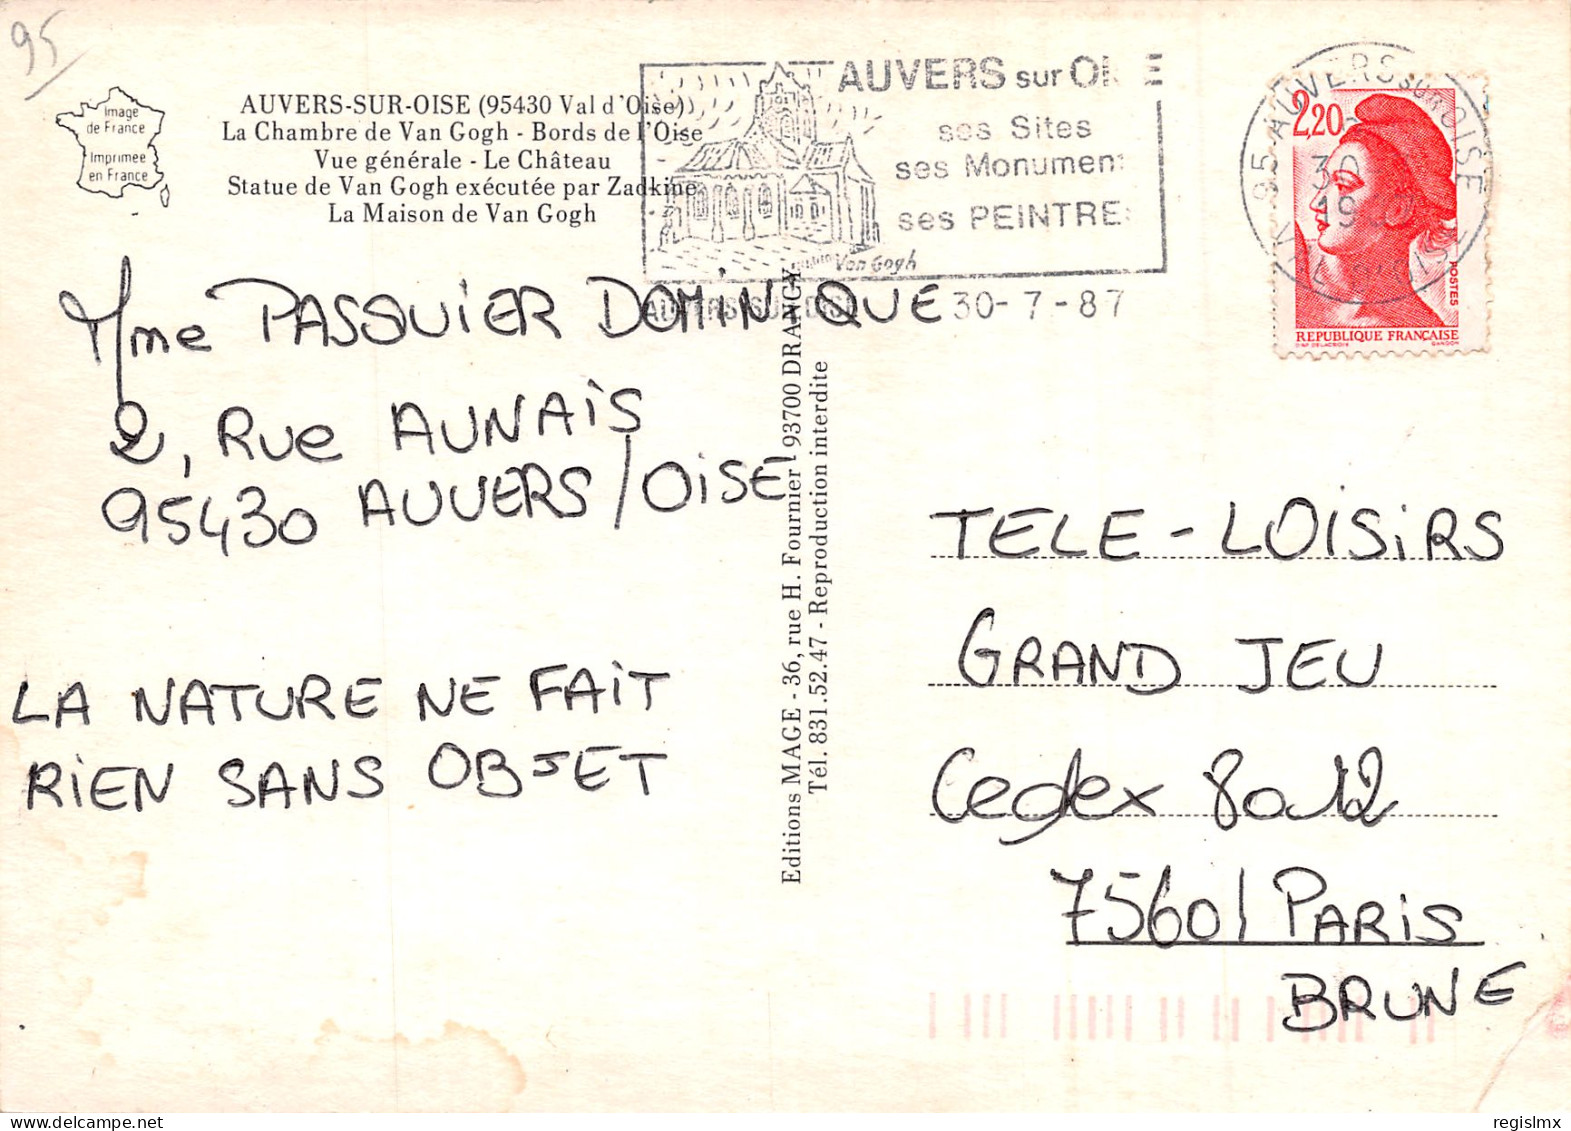 95
Image
de France
Imprimée
en France
AUVERS-SUR-OISE (95430 Val d'Oise)
La Chambre de Van Gogh - Bords de l'Oise
Vue générale - Le Château
Statue de Van Gogh exécutée par Zadkine
La Maison de Van Gogh
AUVERS sur
ses Sites
ses Monument
ses PEINTRE
Van Gogh
AUVERS-SUR-OISE 30-7-87
95 AUVERS SUR OISE
30
2,20
POSTES
REPUBLIQUE FRANÇAISE
GANDON
Mme PASQUIER DOMINIQUE
2, Rue AUNAIS
95430 AUVERS/OISE
LA NATURE NE FAIT
RIEN SANS OBJET
Editions MAGE - 36, rue H. Fournier - 93700 DRANCY
Tél. 831.52.47 - Reproduction interdite
TELE-LOISIRS
GRAND JEU
Cedex 8012
75601 PARIS
BRUNE
regislmx